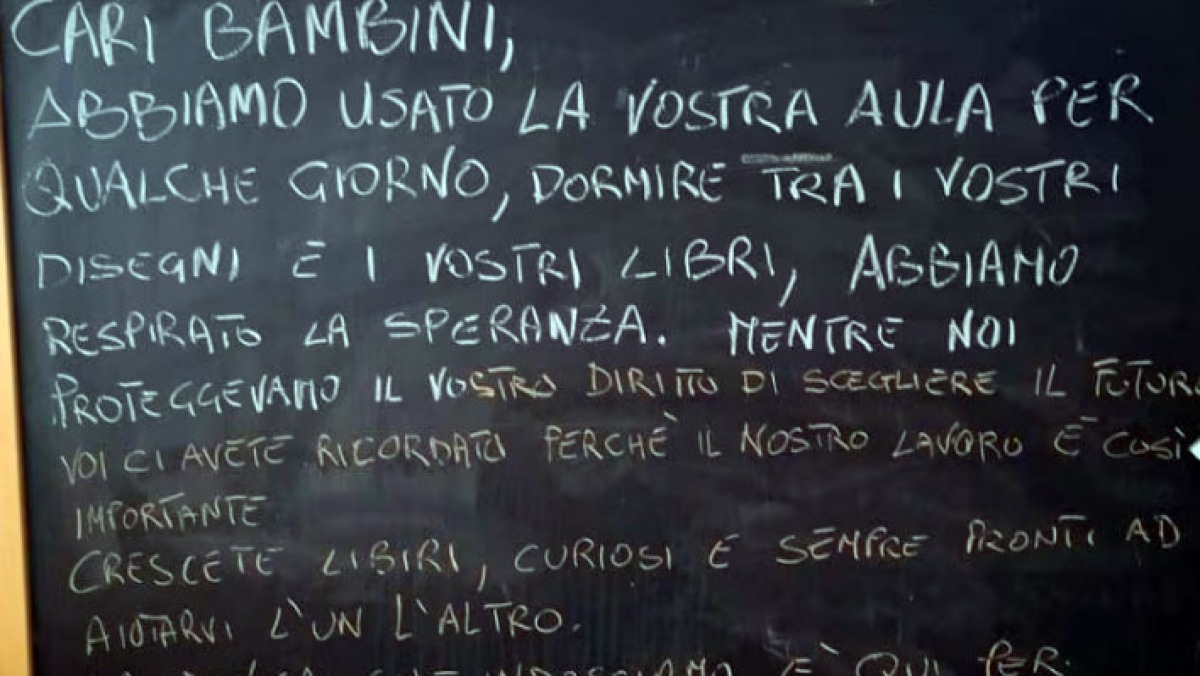 CARI BAMBINI,
ABBIAMO USATO LA VOSTRA AULA PER
QUALCHE GIORNO, DORMIRE TRA I VOSTRI
DISEGNI E I VOSTRI LIBRI, ABBIAMO
RESPIRATO LA SPERANZA. MENTRE NOI
PROTEGGEVAMO IL VOSTRO DIRITTO DI SCEGLIERE IL FUTURO
VOI CI AVETE RICORDATO PERCHÈ IL NOSTRO LAVORO È COSÌ
IMPORTANTE
CRESCETE LIBIRI, CURIOSI E SEMPRE PRONTI AD
AIUTARVI L'UN L'ALTRO.
CHE INDOSSIAMO E' QUI PER